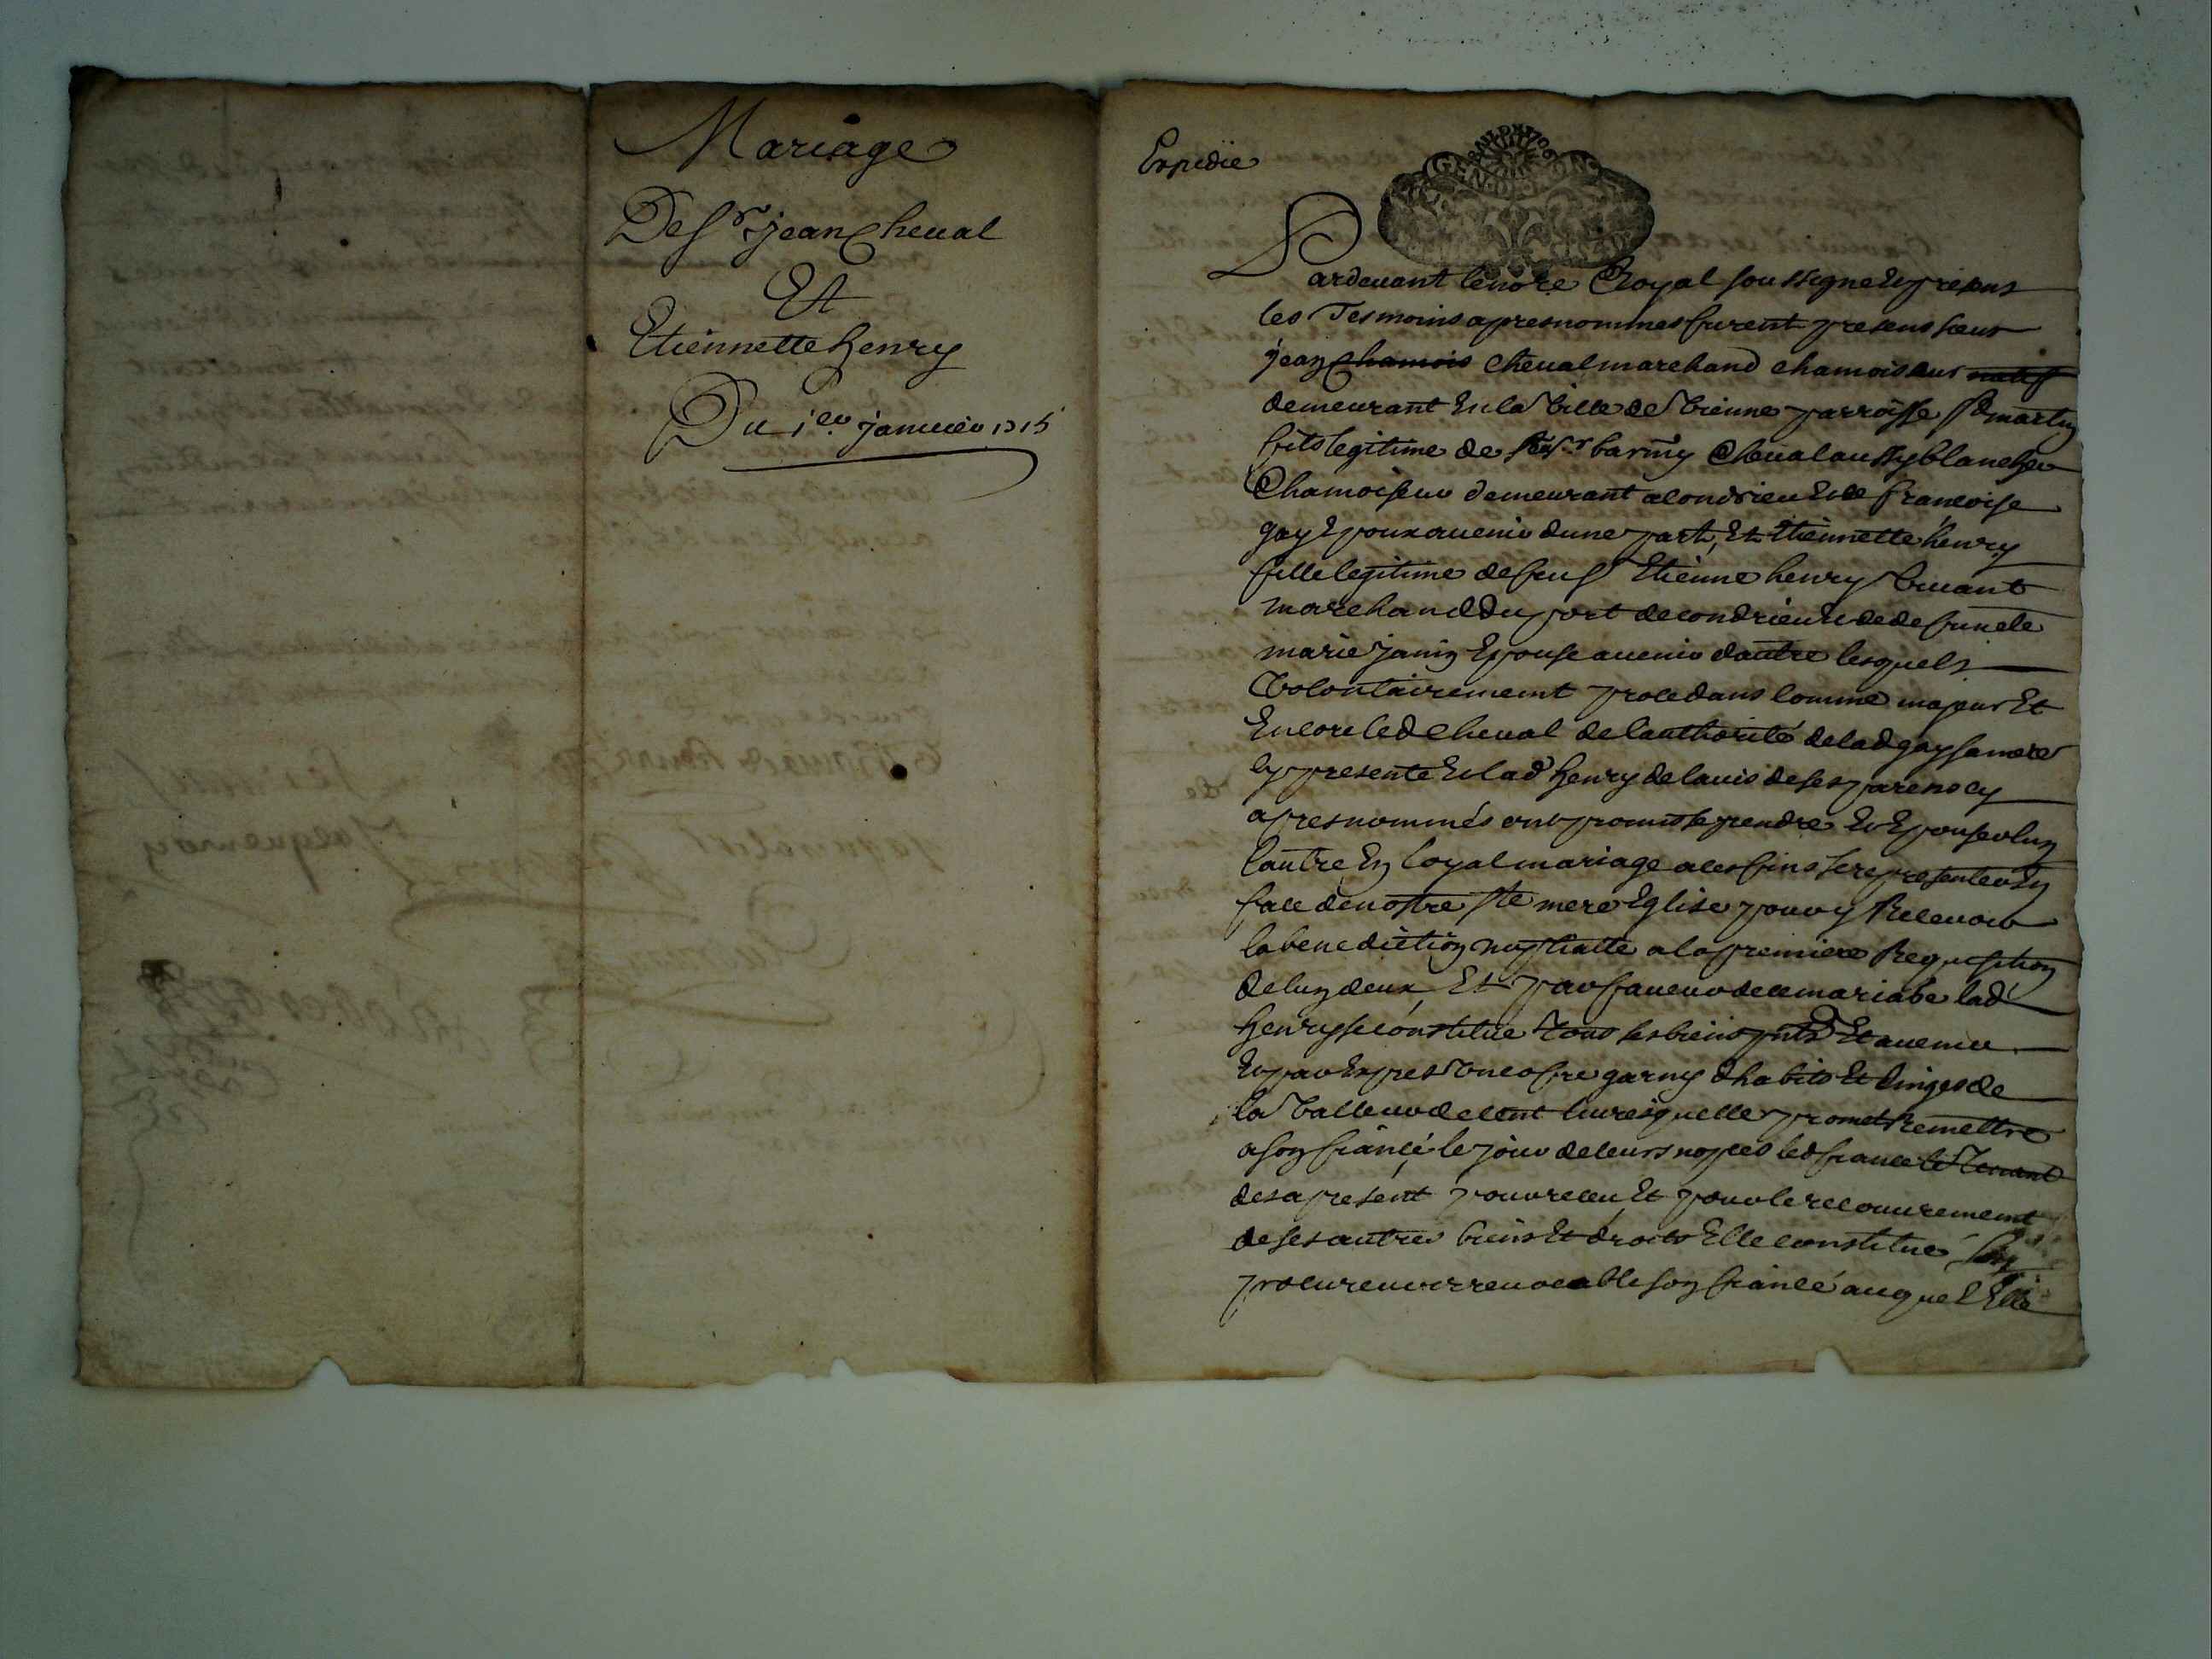 Mariage
De Sr jean Cheual
Et
Etiennette henry
Du 1er januier 1715
Expedie
GEN DE LYON
Pardeuant le no.re Royal soussigne et presens
les Tesmoins apres nommes furent presens sieur
jean chamois Cheual marchand chamoiseur natif
demeurant en la ville de vienne parroisse St martin
fils legitime de Sr Cheual aussy blancher
Chamoiseur demeurant a condrieu et de francoise
gay Epoux auenir dune part, Et Etiennette henry
fille legitime de feu Sr Etienne henry viuant
marchand du port de condrieu et de defuncte
marie janin Epouse auenir dautre lesquels
volontairement procedans comme majeur Et
Encore led Cheual de lauthorité de lad gay sa mere
cy presente et lad henry de lauis de ses parens cy
apres nommés ont promis se prendre et Epouser lun
lautre En loyal mariage a ces fins se representer En
face de nostre Ste mere Eglise pour y Receuoir
la benediction nuptialle a la premiere Requisition
de lun deux, Et par faueur de ce mariage lad
henry se constitue tous ses biens pnts Et auenir
et par Expres vn cofre garny dhabits Et linges de
la valleur de cent liures quelle promet Remettre
a son fiancé le jour de leurs nopces led fiancé le tenant
des a present pour receu, Et pour le recouurement
de ses autres biens Et droits Elle constitue son
procureur irreuocable son fiancé auquel Elle